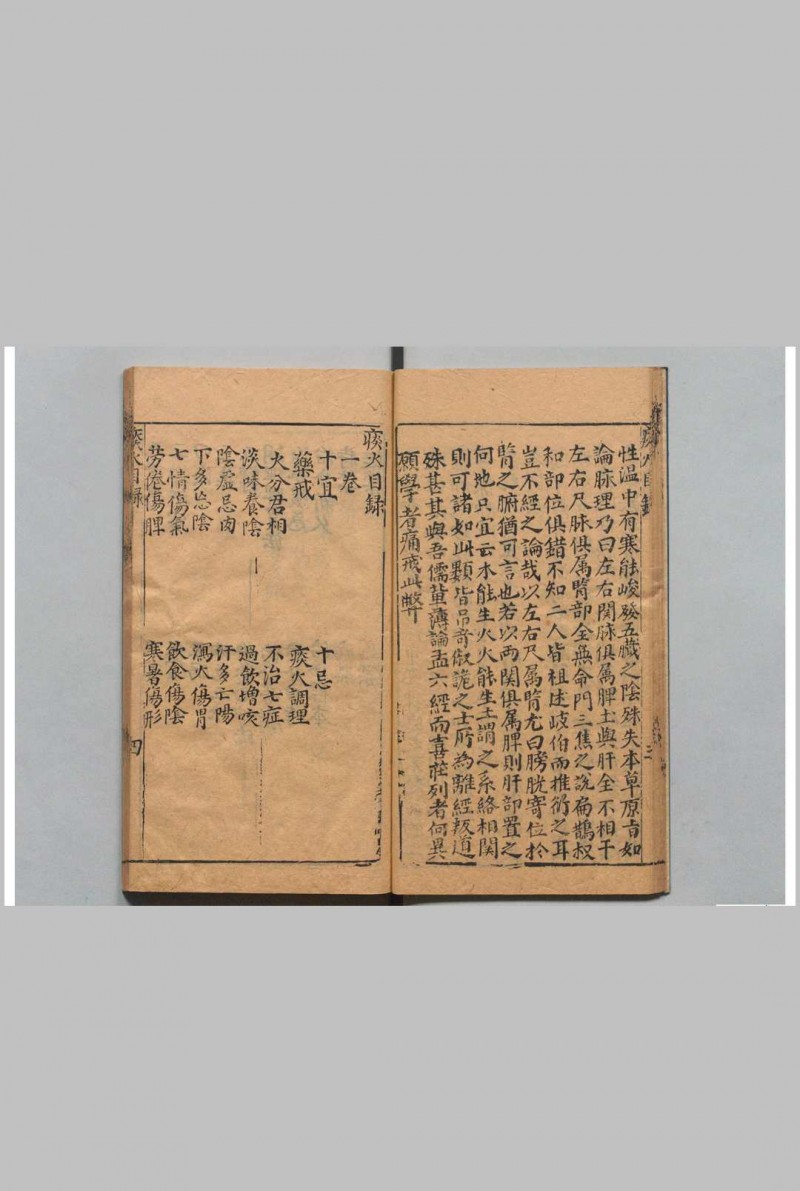 痰火目錄
三
性溫中有寒能峻發五臟之陰殊失本草原旨如
論脉理乃曰左右関脉俱属脾土與肝全不相干
左右尺脉俱属腎部全無命門三焦之說扁鵲叔
和部位俱錯不知二人皆祖述岐伯而推衍之耳
豈不經之論哉以左右尺属腎尤曰膀胱寄位於
腎之腑猶可言也若以両関俱属脾則肝部置之
何地只宜云木能生火火能生土謂之系絡相関
則可諸如此類皆吊奇僘詭之士所為離經叛道
殊甚其與吾儒軰薄論孟六經而喜莊列者何異
願學者痛戒此弊
痰火目錄
一卷
十宜 十忌
藥戒 痰火調理
火分君相 不治七症
淡味養陰 過飲增咳
陰虛忌肉 汗多亡陽
下多亡陰 瀉火傷胃
七情傷氣 飲食傷陰
勞倦傷脾 寒暑傷形
痰火目錄
四